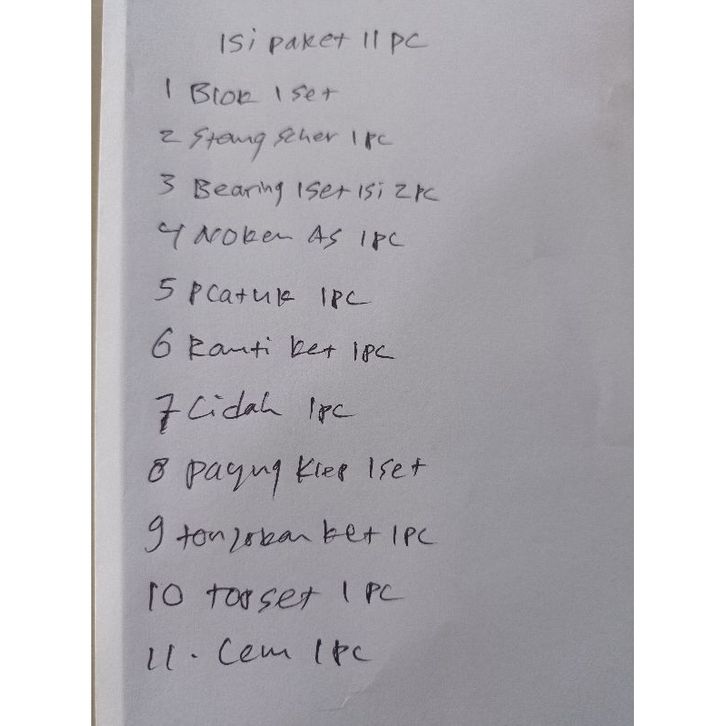 Isi paket 11 pc
1 Blok 1 set
2 Stang Seher 1 pc
3 Bearing 1 set isi 2 pc
4 Noken As 1 pc
5 Pcatuk 1 pc
6 Ranti ket 1 pc
7 Lidah 1 pc
8 Payung Klep 1 set
9 tonjokan ket 1 pc
10 topset 1 pc
11. Cem 1 pc